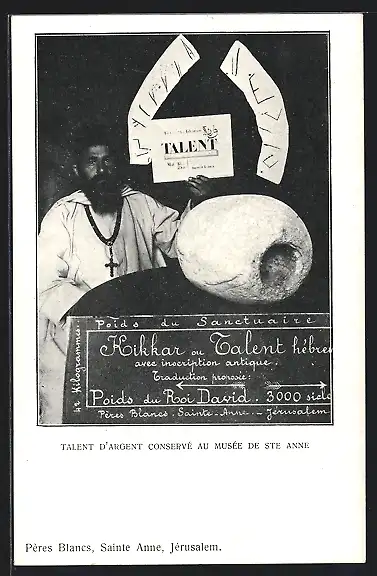 TALENT
42 Kilogrammes.
Poids du Sanctuaire
Kikkar ou Talent hébreu
avec inscription antique.
Traduction proposée:
Poids du Roi David. 3000 sicle
Pères Blancs. Sainte-Anne. – Jérusalem
TALENT D'ARGENT CONSERVÉ AU MUSÉE DE STE ANNE
Pères Blancs, Sainte Anne, Jérusalem.